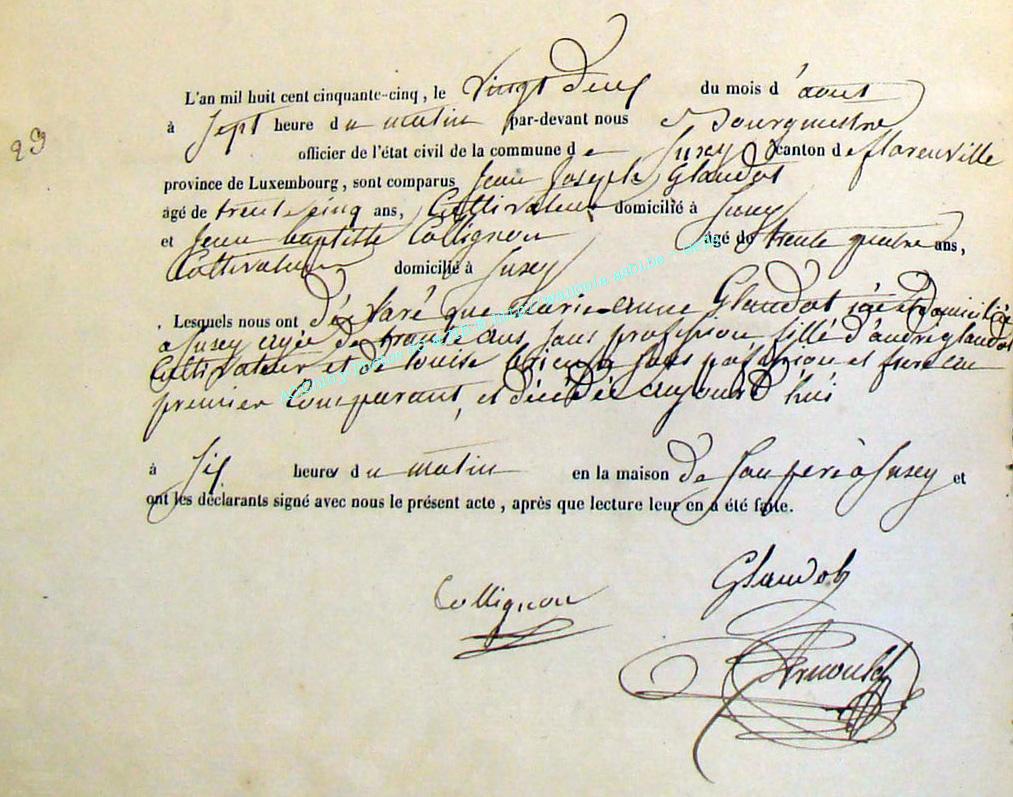 23
L'an mil huit cent cinquante-cinq, le vingt deux du mois d'aout
à sept heure du matin par-devant nous Bourgmestre
officier de l'état civil de la commune de Suxy canton de florenville
province de Luxembourg, sont comparus Jean Joseph Glaudot
âgé de trente cinq ans, Cultivateur domicilié à Suxy
et Jean baptiste Collignon âgé de trente quatre ans,
Cultivateur domicilié à Suxey
Lesquels nous ont déclaré que marie anne Glaudot née et domicilié
a Suxey agée de trente ans sans profession fille d'andré glaudot
Cultivateur et de louise sans profession et frere au
premier Comparant, et décédé aujourd'hui
à six heures du matin en la maison de son pere à Suxey et
ont les déclarants signé avec nous le présent acte, après que lecture leur en a été faite.
Glaudot
Collignon
Arnould